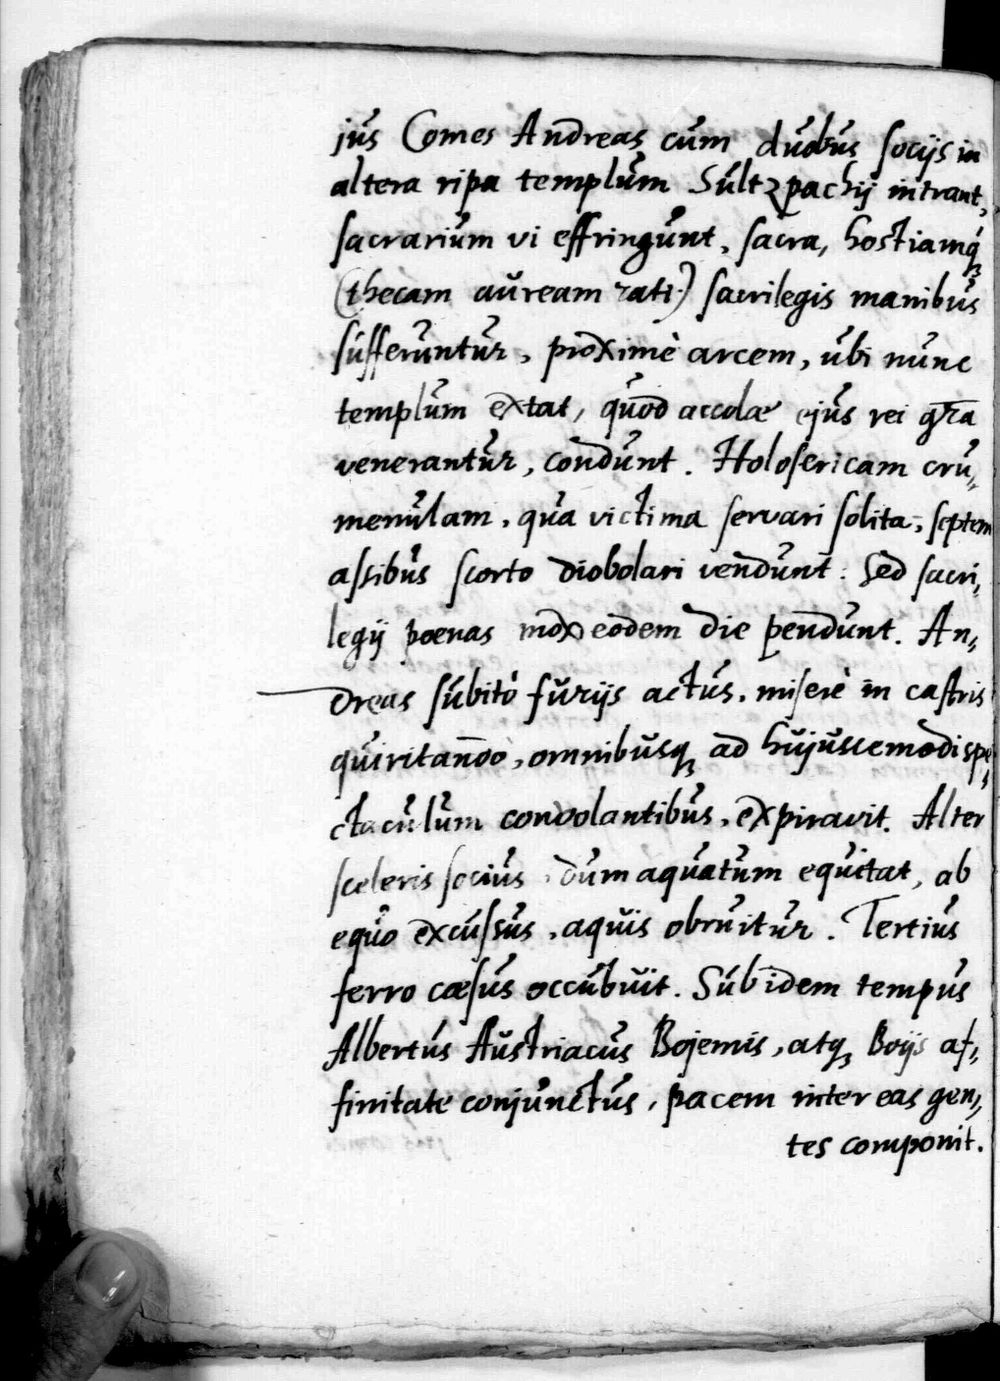 jus Comes Andreas cum duobus socijs in
altera ripa templum Sultzpachij intrant,
sacrarium vi effringunt, sacra, hostiamq́ꝫ
(thecam auream rati) sacrilegis manibus
sufferuntur, proximè arcem, ubi nunc
templum extat, quod accolæ ejus rei gr̄a
venerantur, condunt. Holosericam cru„
menulam, qua victima servari solita, septem
assibus scorto diobolari vendunt: Sed sacri„
legij poenas mox eodem die pendunt. An„
dreas subitò furijs actus, miserè in castris
quiritando, omnibusqꝫ ad hujuscemodi spe„
ctaculum convolantibus, expiravit. Alter
sceleris socius, dum aquatum equitat, ab
equo excussus, aquis obruitur. Tertius
ferro cæsus occubuit. Sub idem tempus
Albertus Austriacus Bojemis, atqꝫ Boijs af„
finitate conjunctus, pacem inter eas gen„
tes componit.